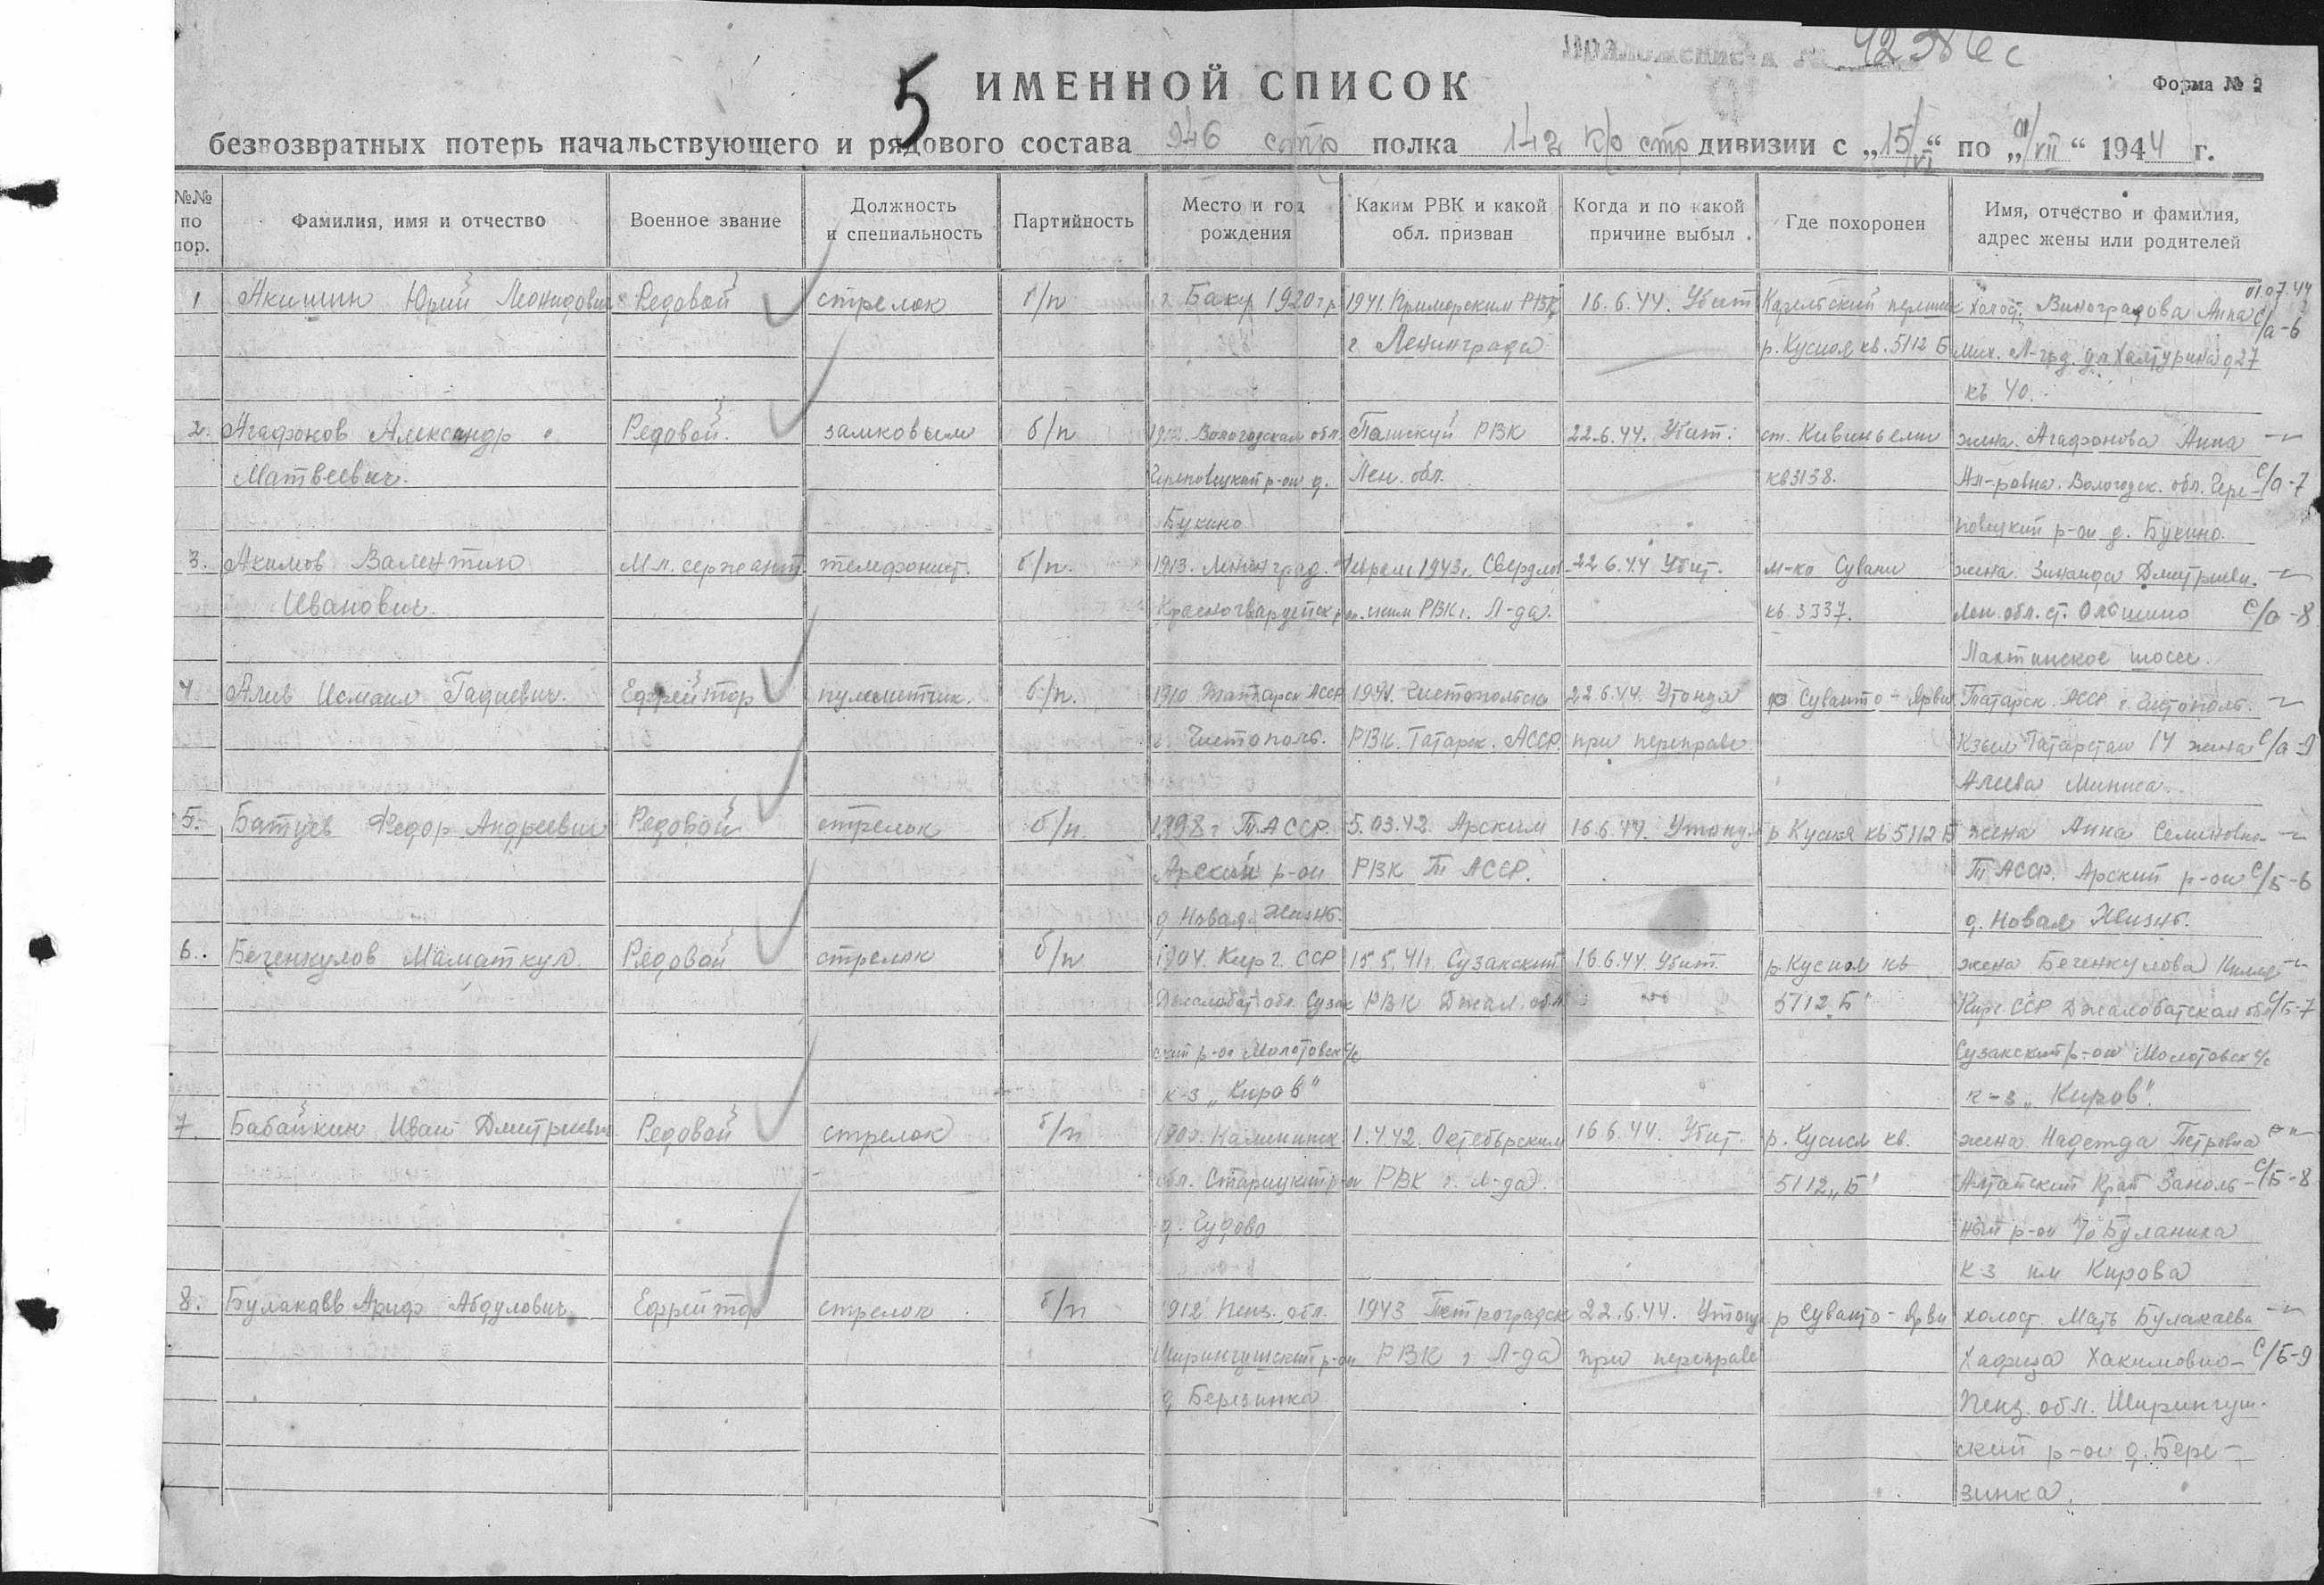 42386с
Форма № 2
5
ИМЕННОЙ СПИСОК
безвозвратных потерь начальствующего и рядового состава 946 стр полка 142 к/о стр дивизии с „15/VI“ по „01/VII“ 1944 г.
№№ по пор.
Фамилия, имя и отчество
Военное звание
Должность и специальность
Партийность
Место и год рождения
Каким РВК и какой обл. призван
Когда и по какой причине выбыл
Где похоронен
Имя, отчество и фамилия, адрес жены или родителей
01.07.44
1 Акишин Юрий Леонидович Редовой стрелок б/п г. Баку 1920 г р 1941. Приморским РВК 16.6.44. Убит Карельский перешеек холост. Виноградова Анна с/а-6
г. Ленинграда р. Кусиоя кв. 5112 Б Мих. Л-град. ул Халтурина д 27
кв 40.
2. Агафонов Александр Редовой. замковым б/п Вологодская обл. РВК 22.6.44. Убит. ст. Кивиньеми жена. Агафонова Анна
Матвеевич. Череповецкий р-он д. Лен. обл. кв 3138. Ал-ровна. Вологодск. обл. Чере- с/а-7
Букино повецкий р-он д. Букино.
3. Акимов Валентин Мл. сержант. телефонист. б/п. 1913. Ленинград. Февраль 1943г. Свердлов 22 6.44 Убит. м-ко Сувани жена Зинаида Дмитриевн.
Иванович. Красногвардейск р-он. ским РВК г. Л-да. кв. 3337. Лен. обл. ст. Ольгино с/а-8
Лахтинское шоссе.
4. Алев Исмаил Гадиевич. Ефрейтор пулеметчик. б/п. 1910 Татарск АССР 1941. Чистопольским 22.6.44. Утонул Суванто-Ярви Татарск. АССР г. Чистополь.
г. Чистополь. РВК. Татарск. АССР. при переправе Кзыл Татарстан 14 жена с/а-9
Алеева
5. Батуев Федор Андреевич Редовой стрелок б/п 1898 г ТАССР. 5.03.42. Арским 16.6.44. Утонул р Кусиоя кв 5112 Б жена Анна Семеновна
Арский р-он РВК Т АССР. ТАССР. Арский р-он с/Б-6
д Новая Жизнь. д. Новая Жизнь.
6. Бегенкулов Маматкул. Редовой стрелок б/п 1904. Кирг. ССР 15.5.41г. Сузакский 16.6.44. Убит. р. Кусиоя кв жена Бегенкулова
Джалобат обл. Сузак РВК Джал. обл. 5112„Б" Кирг. ССР Джалобатская обл с/Б-7
ский р-он Молотовск с/с Сузакский р-он Молотовск с/с
к-з „Киров" к-з „Киров".
7. Бабайкин Иван Дмитриевич Редовой стрелок б/п Калининск 1.4.42. Октебрьским 16 6.44. Убит. р. Кусиоя кв. жена Надежда Петровна
обл. Старицкий р-он РВК г. Л-да. 5112„Б" Алтайский Край Заполь- с/Б-8
д. Чудово ный р-он п/о Буланиха
к з им Кирова
8. Булакаев Ариф Абдулович Ефрейтор стрелок б/п 1912 Пенз. обл. 1943 Петроградск 22.6.44. Утонул р Суванто-Ярви холост. Мать Булакаева
Ширингушский р-он РВК г Л-да при переправе Хафиза Хакимовна- с/Б-9
д Березинка Пенз. обл. Ширингуш-
ский р-он д. Бере-
зинка.